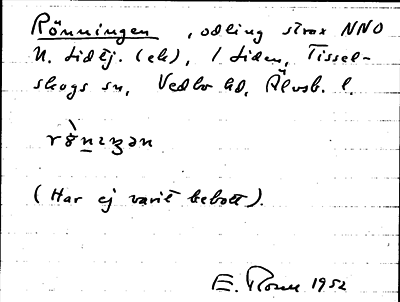 Rönningen, odling strax NNO
N. Lidtj. (ek), / Liden, Tissel-
skogs sn, Vedbo hd, Älvsb. l.
(Har ej varit bebott).
E. 1952